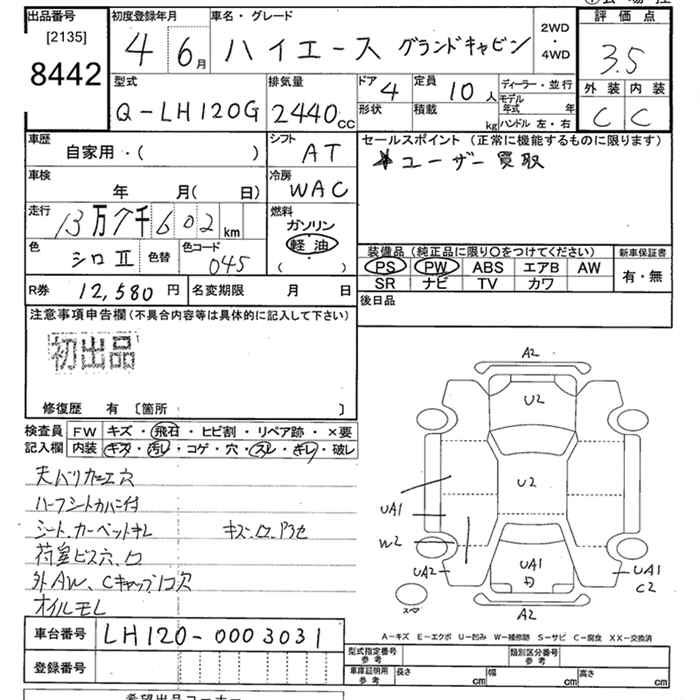 出品番号
[2135]
8442
初度登録年月
4 6月
車名・グレード
ハイエース グランドキャビン
2WD
・
4WD
評価点
3.5
外装 内装
C C
型式
Q-LH120G
排気量
2440cc
ドア 4
形状
定員 10人
積載 kg
ディーラー・並行
モデル年式 年
ハンドル 左・右
車歴
自家用・( )
シフト
AT
車検
年 月( 日)
冷房
WAC
走行
13万7千602km
燃料
ガソリン
軽油
( ・ )
色
シロⅡ
色替
色コード
045
セールスポイント(正常に機能するものに限ります)
★ユーザー買取
装備品(純正品に限り〇をつけてください)
新車保証書
PS PW ABS エアB AW
有・無
SR ナビ TV カワ
R券 12,580円
名変期限 月 日
後日品
注意事項申告欄(不具合内容等は具体的に記入して下さい)
初出品
修復歴 有〔箇所 〕
検査員
記入欄
FW キズ・飛石・ヒビ割・リペア跡・×要
内装 キズ・汚レ・コゲ・穴・スレ・キレ・破レ
天バリ加工穴
ハーフシートカバー付
シート、カーペットキレ キズ、コゲ
荷室ビス穴
外AW、Cキャップ1コ欠
オイルモレ
A2
U2
U2
UA1
W2
UA2
UA1
UA1
C2
A2
スペア
A-キズ E-エクボ U-凹み W-補修跡 S-サビ C-腐食 XX-交換済
車台番号 LH120-0003031
登録番号
型式指定番号
参考
類別区分番号
参考
車庫証明用
参考
長さ cm
幅 cm
高さ cm
希望出品コーナー